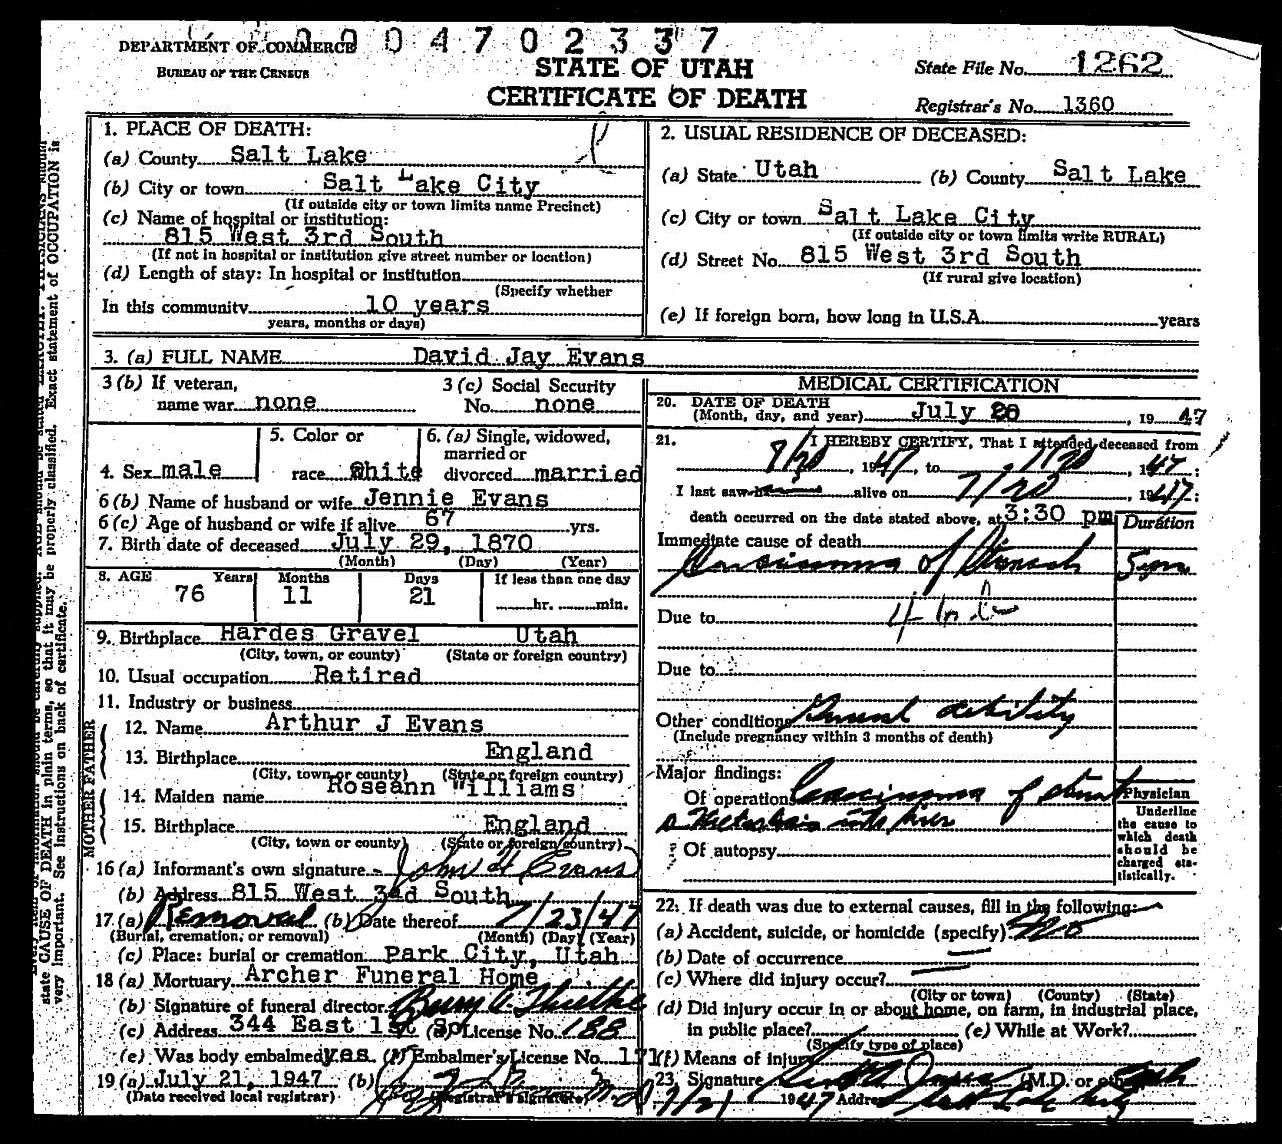 0004702337
DEPARTMENT OF COMMERCE
BUREAU OF THE CENSUS
STATE OF UTAH
CERTIFICATE OF DEATH
State File No. 1262
Registrar's No. 1360
1. PLACE OF DEATH:
(a) County Salt Lake
(b) City or town Salt Lake City
(If outside city or town limits name Precinct)
(c) Name of hospital or institution:
815 West 3rd South
(If not in hospital or institution give street number or location)
(d) Length of stay: In hospital or institution
(Specify whether
In this community 10 years
years, months or days)
2. USUAL RESIDENCE OF DECEASED:
(a) State Utah (b) County Salt Lake
(c) City or town Salt Lake City
(If outside city or town limits write RURAL)
(d) Street No. 815 West 3rd South
(If rural give location)
(e) If foreign born, how long in U.S.A. years
3. (a) FULL NAME David Jay Evans
3 (b) If veteran, name war none
3 (c) Social Security No. none
4. Sex male
5. Color or race White
6. (a) Single, widowed, married or divorced married
6 (b) Name of husband or wife Jennie Evans
6 (c) Age of husband or wife if alive 67 yrs.
7. Birth date of deceased July 29, 1870
(Month) (Day) (Year)
8. AGE Years Months Days If less than one day
76 11 21 hr. min.
9. Birthplace Hardes Gravel Utah
(City, town, or county) (State or foreign country)
10. Usual occupation Retired
11. Industry or business
FATHER
12. Name Arthur J Evans
13. Birthplace England
(City, town or county) (State or foreign country)
MOTHER
14. Maiden name Roseann Williams
15. Birthplace England
(City, town or county) (State or foreign country)
16 (a) Informant's own signature John H Evans
(b) Address 815 West 3rd South
17. (a) Removal (b) Date thereof 7/23/47
(Burial, cremation, or removal) (Month) (Day) (Year)
(c) Place: burial or cremation Park City, Utah
18 (a) Mortuary Archer Funeral Home
(b) Signature of funeral director
(c) Address 344 East 1st So. (d) License No. 188
(e) Was body embalmed yes (f) Embalmer's License No. 171
19 (a) July 21, 1947 (b) M.D.
(Date received local registrar) (Registrar's signature)
MEDICAL CERTIFICATION
20. DATE OF DEATH
(Month, day, and year) July 20, 1947
21. I HEREBY CERTIFY, That I attended deceased from
7/20, 1947, to 7/20, 1947;
I last saw him alive on 7/20, 1947;
death occurred on the date stated above, at 3:30 pm
Duration
Immediate cause of death
Carcinoma of Stomach
Due to
Due to
Other conditions General debility
(Include pregnancy within 3 months of death)
Major findings:
Of operations Carcinoma of
into liver
Of autopsy
Physician
Underline
the cause to
which death
should be
charged sta-
tistically.
22. If death was due to external causes, fill in the following:
(a) Accident, suicide, or homicide (specify) No
(b) Date of occurrence
(c) Where did injury occur?
(City or town) (County) (State)
(d) Did injury occur in or about home, on farm, in industrial place,
in public place? (e) While at Work?
(Specify type of place)
(f) Means of injury
23. Signature (M.D. or other)
7/21 1947 Address Salt Lake City
state CAUSE OF DEATH in plain terms, so that it may be properly classified. Exact statement of OCCUPATION is
very important. See instructions on back of certificate.